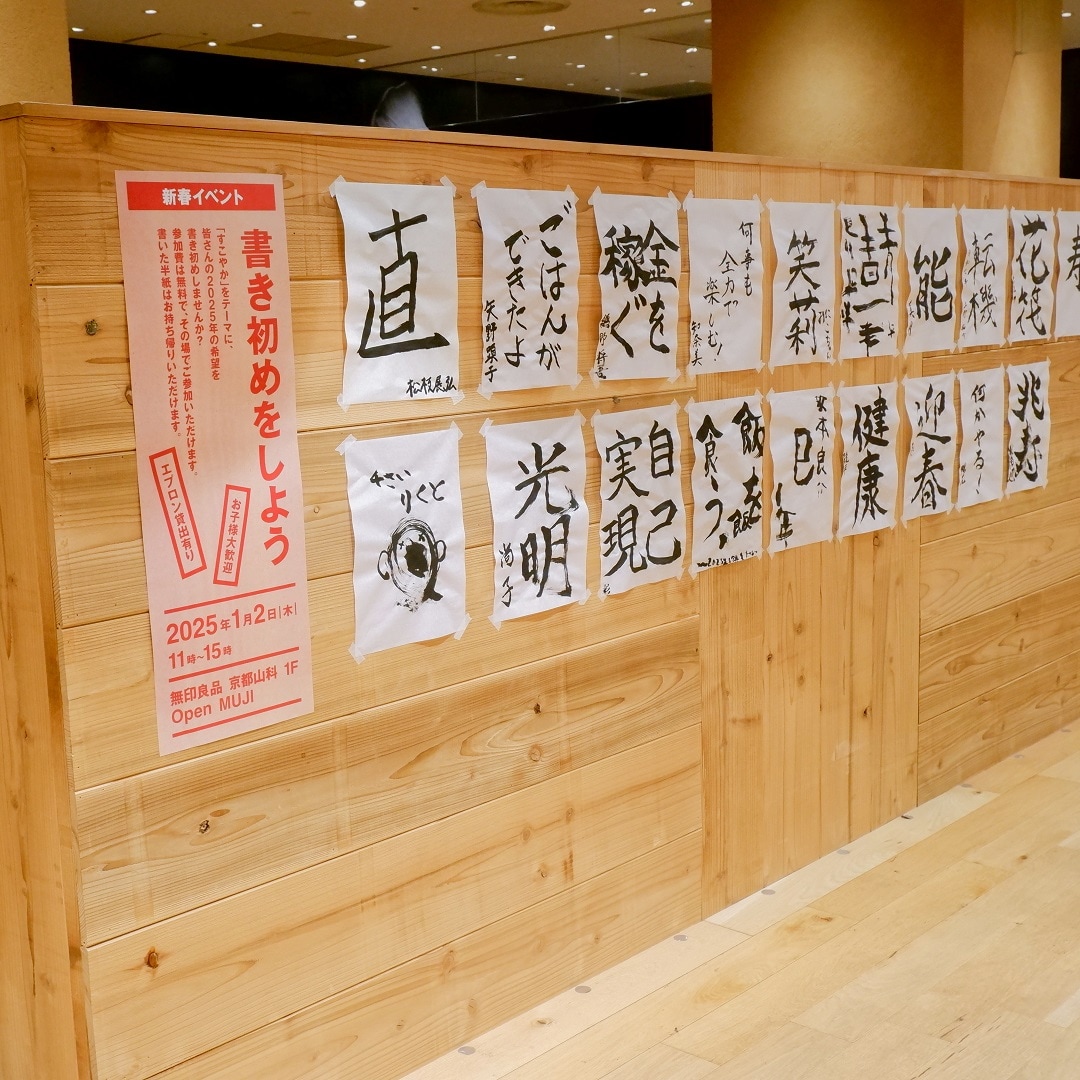 新春イベント
書き初めをしよう
「すこやか」をテーマに、
皆さんの2025年の希望を
書き初めしませんか?
参加費は無料で、その場でご参加いただけます。
書いた半紙はお持ち帰りいただけます。
お子様大歓迎
エプロン貸出有り
2025年1月2日|木|
11時~15時
無印良品 京都山科 1F
Open MUJI
直
ごはんが
できたよ
矢野
金を
稼ぐ
何事も
全力で
楽しむ!
笑莉
能
転機
花筏
寿
りくと
光明
自己
実現
飯
食う
巳
健康
迎春
何かやる!
兆寿